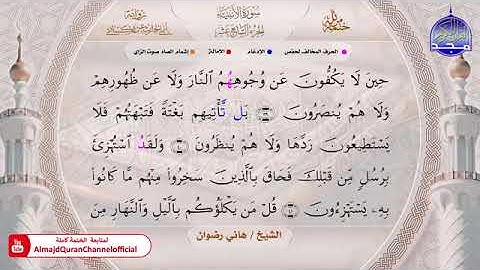 سورة الأنبياء
الجزء السابع عشر
الحرف المخالف لحفص
الإدغام
الإمالة
إشمام الصاد صوت الزاي
حِينَ لَا يَكُفُّونَ عَن وُجُوهِهُمُ ٱلنَّارَ وَلَا عَن ظُهُورِهِمْ
وَلَا هُمْ يُنصَرُونَ ٣٩ بَل تَّأْتِيهِم بَغْتَةً فَتَبْهَتُهُمْ فَلَا
يَسْتَطِيعُونَ رَدَّهَا وَلَا هُمْ يُنظَرُونَ ٤٠ وَلَقَدُ ٱسْتُهْزِئَ
بِرُسُلٍ مِّن قَبْلِكَ فَحَاقَ بِٱلَّذِينَ سَخِرُوا۟ مِنْهُم مَّا كَانُوا۟
بِهِۦ يَسْتَهْزِءُونَ ٤١ قُلْ مَن يَكْلَؤُكُم بِٱلَّيْلِ وَٱلنَّهَارِ مِنَ
الشيخ / هاني رضوان
لمتابعة الختمة كاملة
AlmajdQuranChannelofficial